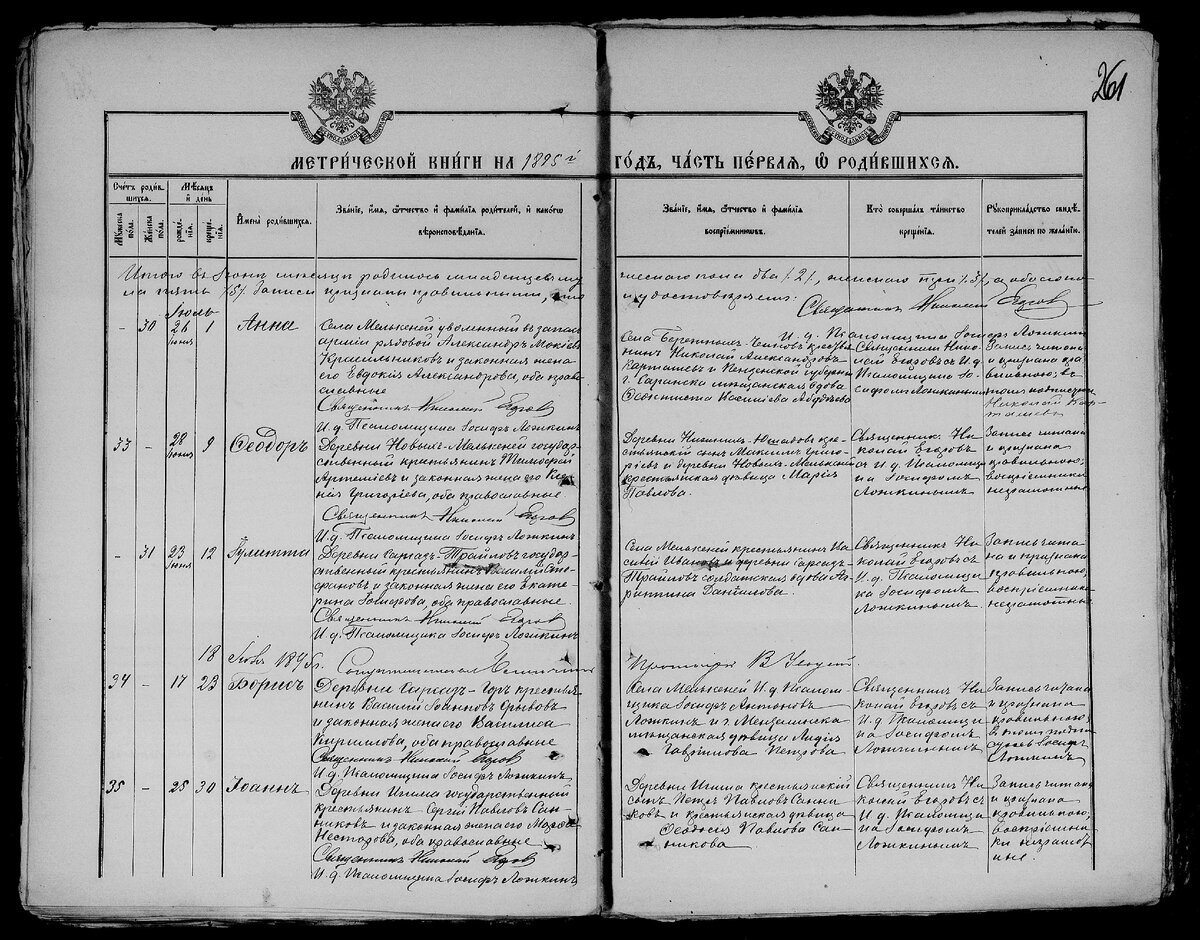 261
МЕТРИ́ЧЕСКОЙ КНИ́ГИ НА 1895 й
ГО́ДЪ, ЧА́СТЬ ПЕ́РВАЯ, Ѿ РОДИ́ВШИХСЯ.
Сче́тъ роди́в-
шихся.
Мѣ́сяцъ
и́ день
Мꙋ́жеска по́ла.
Же́нска по́ла.
рожде́-
нїя.
креще́-
нїя.
Имена̀ роди́вшихся.
Зва́нїе, и́мя, ѻ́тчество и́ фами́лїѧ роди́телей, и́ како́гѡ
вѣроисповѣ́данїѧ.
Зва́нїе, и́мя, ѻ́тчество и́ фами́лїѧ
воспрїе́мниковъ.
Кто̀ соверша́лъ та́инство
креще́нїѧ.
Рꙋкоприкла́дство свидѣ́-
телей за́писи по жела́нїю.
Итого въ Іюнѣ мѣсяцѣ родилось младенцевъ му-
жескаго пола два /2/, женскаго три /3/, а обоего по-
ла пять /5/. Записи признаны правильными, что
и удостовѣряемъ:
Священникъ Николай Егоровъ
И. д. Псаломщика Іосифъ Ложкинъ
Іюль
- 30 26 Іюня 1 Анна
Села Мелькеней уволенный въ запасъ
арміи рядовой Александръ Мокіевъ
Красильниковъ и законная жена
его Евдокія Александрова, оба право-
славные
Священникъ Николай Егоровъ
И. д. Псаломщика Іосифъ Ложкинъ
нинъ Николай Александровъ
Карташевъ и Пензенской губерніи
г. Саранска мѣщанская вдова
Священникъ Нико-
лай Егоровъ съ И. д.
Псаломщика Іо-
сифомъ Ложкинымъ
Запись читалъ
и призналъ пра-
вильною; въ
томъ подписуюсь
Николай Кар-
ташевъ
33 - 28 Іюня 9 Ѳеодоръ
Деревни Новыхъ-Мелькеней государ-
ственный крестьянинъ Тимоѳей
Артеміевъ и законная жена его Ксе-
нія Григоріева, оба православные
Священникъ Николай Егоровъ
И. д. Псаломщика Іосифъ Ложкинъ
стьянскій сынъ Максимъ Григо-
ріевъ и деревни Новыхъ-Мелькеней
крестьянская дѣвица Марія
Павлова.
Священникъ Ни-
колай Егоровъ
съ И. д. Псаломщи-
ка Іосифомъ
Ложкинымъ
Запись читана
и признана
правильною;
воспріемники
неграмотные
- 31 23 Іюня 12 Іулитта
Деревни Сарсазъ-Трайловъ государ-
ственный крестьянинъ Василій Сте-
фановъ и законная жена его Екате-
рина Іосифова, оба православные.
Священникъ Николай Егоровъ
И. д. Псаломщика Іосифъ Ложкинъ
Села Мелькеней крестьянинъ Ва-
силій Ивановъ и деревни Сарсазъ-
Трайловъ солдатская вдова Аг-
риппина Данилова.
Священникъ Ни-
колай Егоровъ съ
И. д. Псаломщи-
ка Іосифомъ
Ложкинымъ.
Запись чита-
на и признана
правильною;
воспріемники
неграмотные
18 Іюля 1895 г.
34 - 17 23 Борисъ
Деревни Сарсазъ-Горъ крестья-
нинъ Василій Іоанновъ
и законная жена его Васса
Кириллова, оба православные
Священникъ Николай Егоровъ
И. д. Псаломщика Іосифъ Ложкинъ
Села Мелькеней И. д. Псалом-
щика Іосифъ Антоновъ
Ложкинъ и г. Мензелинска
мѣщанская дѣвица Лидія
Гаврилова Петрова
Священникъ Ни-
колай Егоровъ съ
И. д. Псаломщи-
ка Іосифомъ
Ложкинымъ
Запись читана
и признана
правильною;
въ томъ подпи-
суюсь Іосифъ
Ложкинъ
35 - 25 30 Іоаннъ
Деревни Игима государственный
крестьянинъ Сергій Павловъ Сан-
никовъ и законная жена его Марѳа
Несторова, оба православные
Священникъ Николай Егоровъ
И. д. Псаломщика Іосифъ Ложкинъ
Деревни Игима крестьянскій
сынъ Петръ Павловъ Санни-
ковъ и крестьянская дѣвица
Ѳеодосія Павлова Сан-
никова
Священникъ Ни-
колай Егоровъ съ
И. д. Псаломщи-
ка Іосифомъ
Ложкинымъ
Запись читана
и признана
правильною;
воспріемни-
ки неграмот-
ные